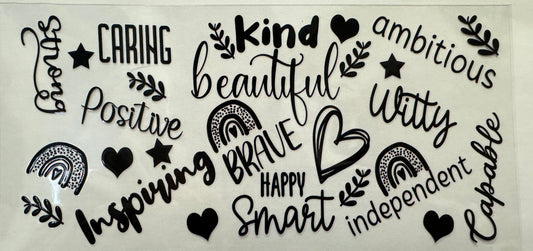 Strong
CARING
Kind
ambitious
beautiful
Positive
Witty
BRAVE
Inspiring
HAPPY
Smart
independent
Capable